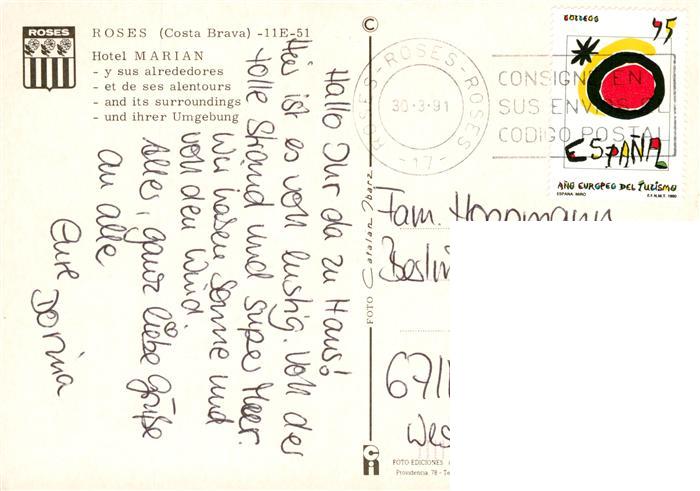 ROSES
ROSES (Costa Brava) -11E-51
Hotel MARIAN
- y sus alrededores
- et de ses alentours
- and its surroundings
- und ihrer Umgebung
Hallo Ihr da zu Haus!
Hier ist es voll lustig. Voll der
tolle Strand und super Meer.
Wir haben Sonne und
voll den Wind.
Alles, ganz liebe Grüße
an alle
Eure
Dorina
©
FOTO Catalan Ibarz
FOTO-EDICIONES
Providencia, 78 - Te
ROSES-ROSES-ROSES
30-3-91
-17-
CONSIGNE EN
SUS ENVIOS EL
CODIGO POSTAL
CORREOS 45
ESPAÑA
AÑO EUROPEO DEL TURISMO
ESPAÑA MIRÓ F.N.M.T. 1990
Fam. Hoppmann
671
Wes